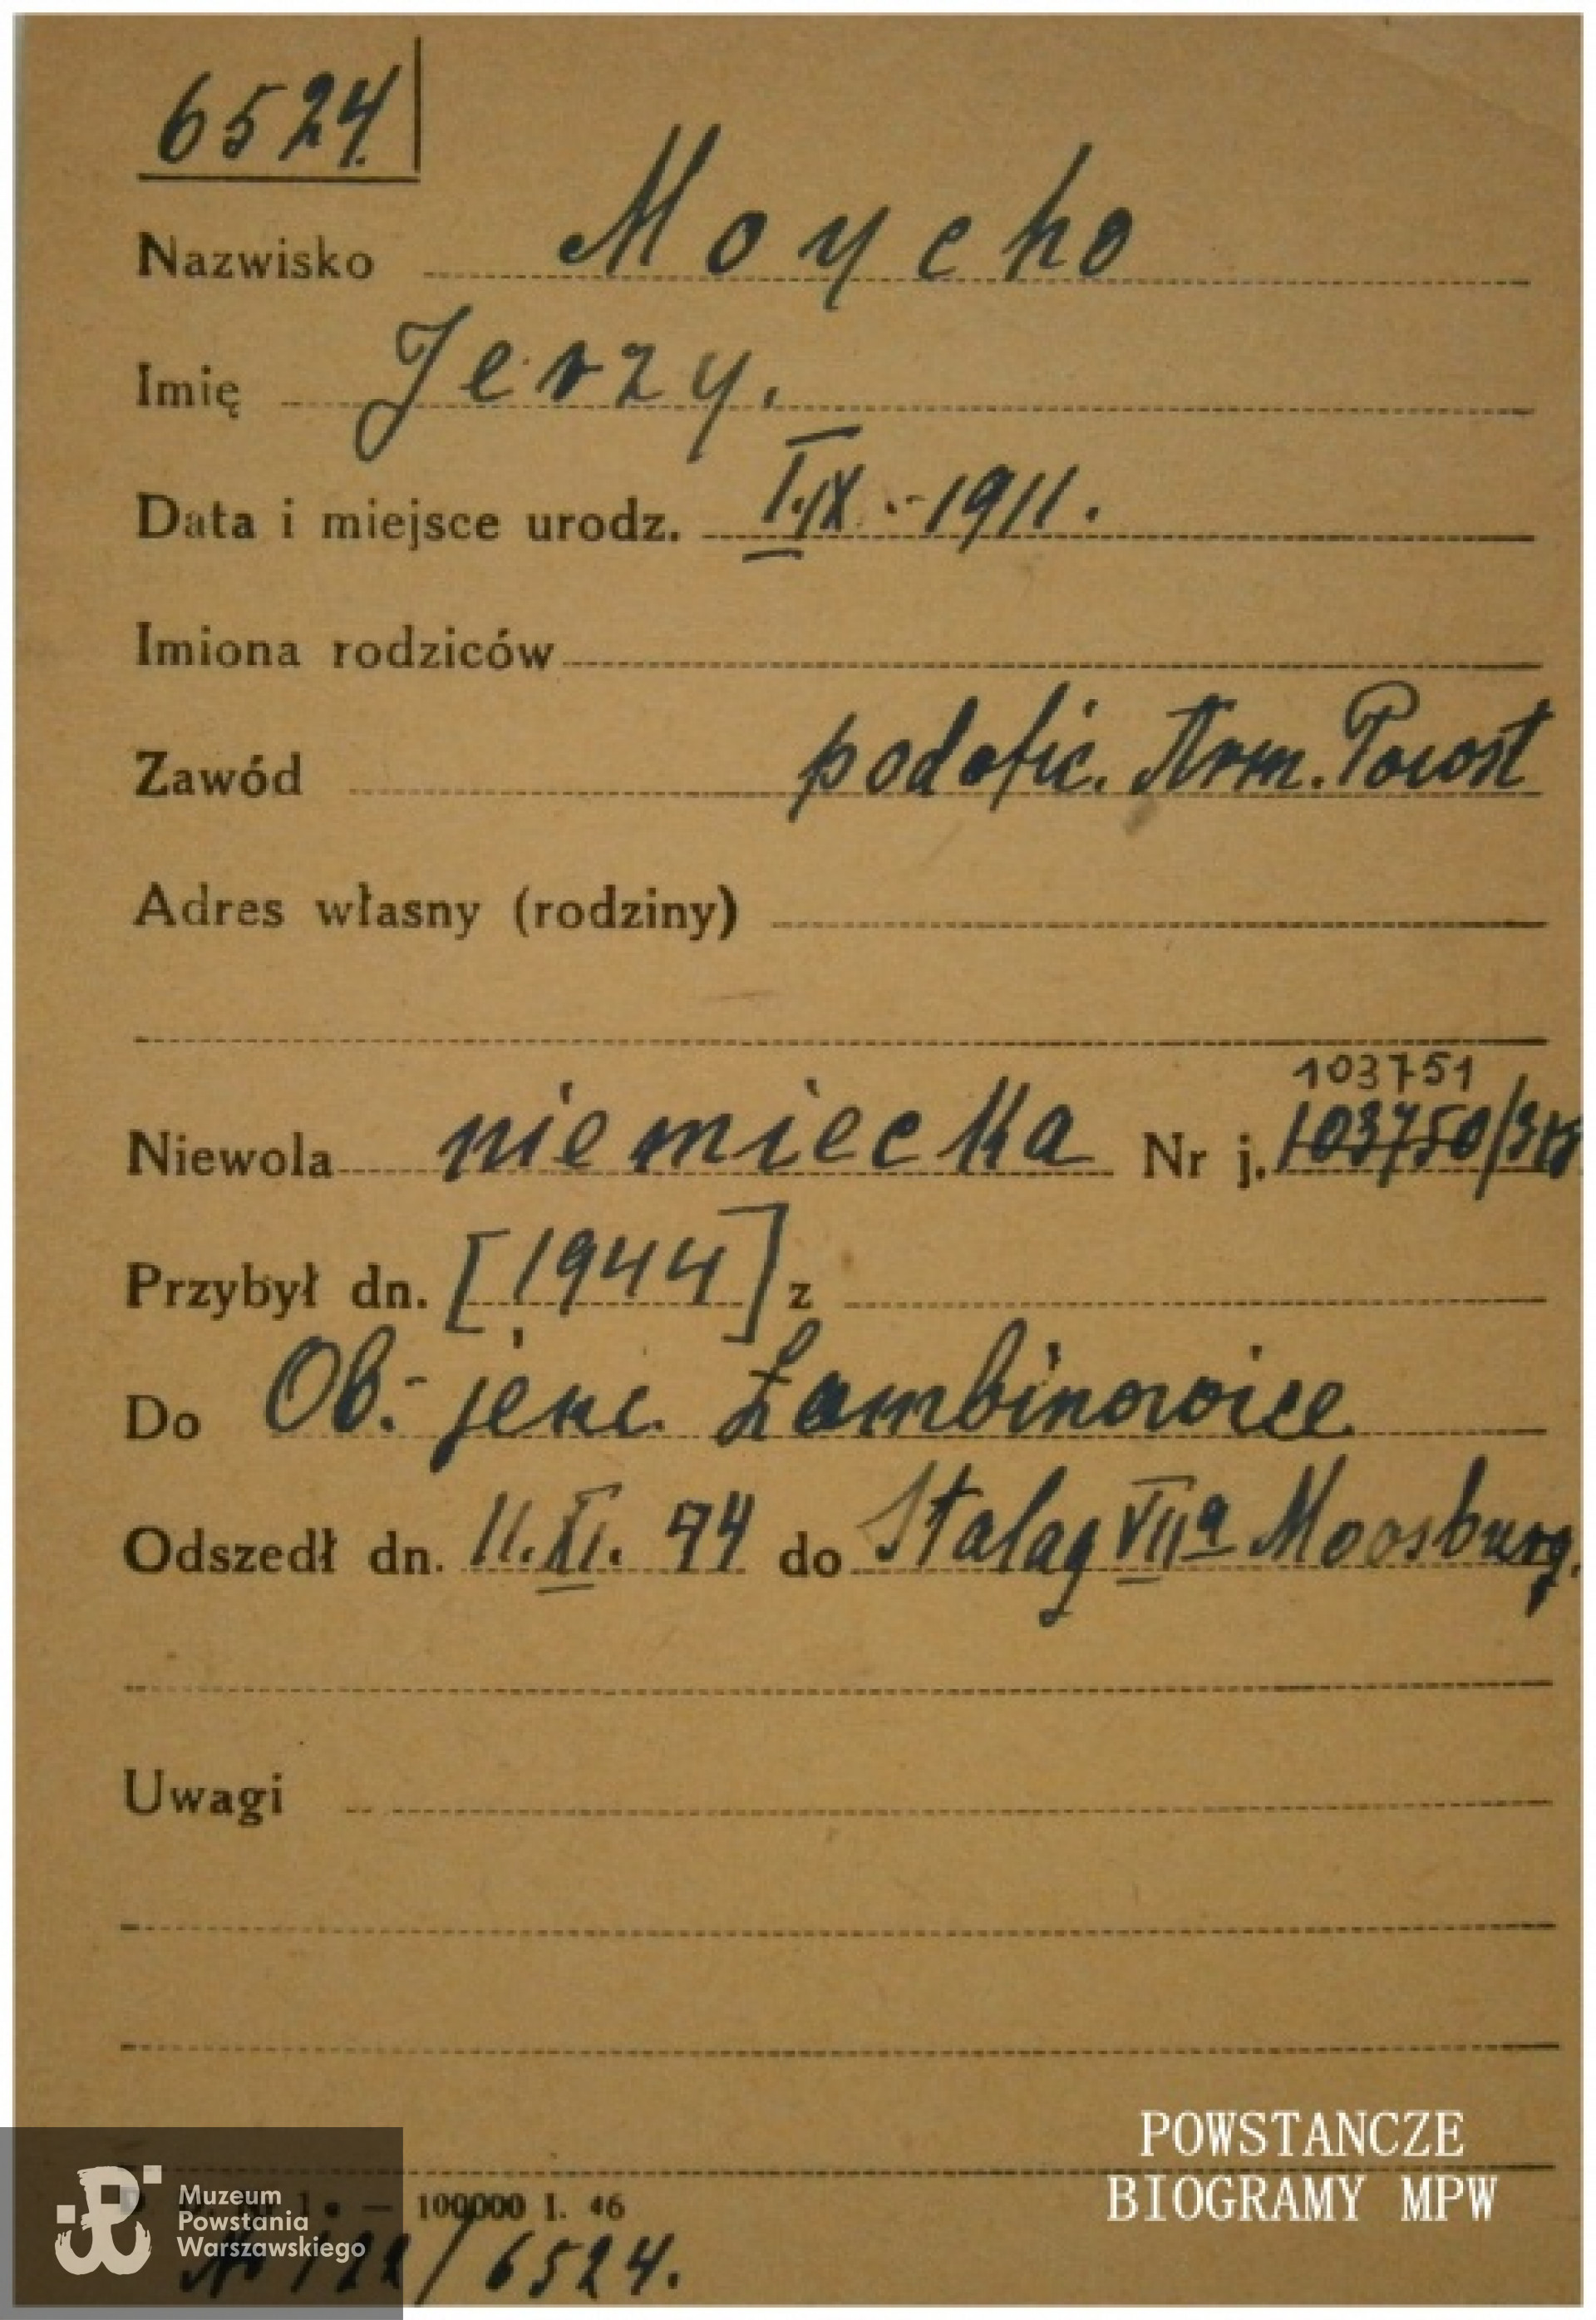 6524.
Nazwisko Moycho
Imię Jerzy.
Data i miejsce urodz. 1911.
Imiona rodziców
Zawód podofic. Arm. Powst
Adres własny (rodziny)
103751
Niewola niemiecka Nr j. 103750/
Przybył dn. [1944] z
Do Ob. jenc. Łambinowice
Odszedł dn. 11.XI. 44 do Stalag VIIa Moosburg.
Uwagi
POWSTANCZE
BIOGRAMY MPW
100000 I. 46
Muzeum
Powstania
Warszawskiego
/6524.